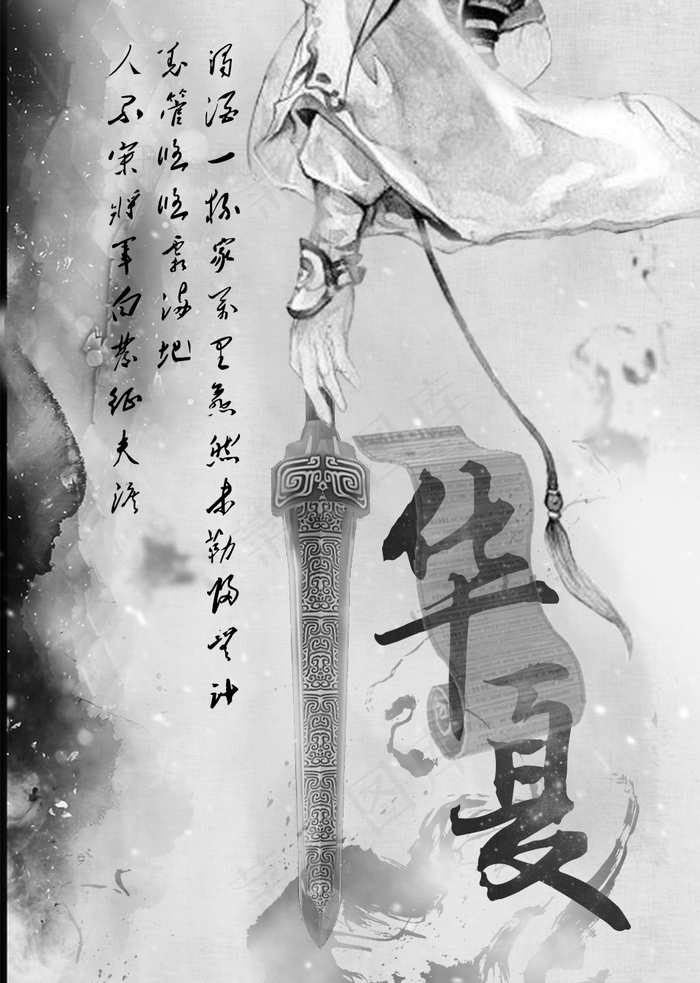 浊酒一杯家万里燕然未勒归无计
羌管悠悠霜满地
人不寐将军白发征夫泪
华夏